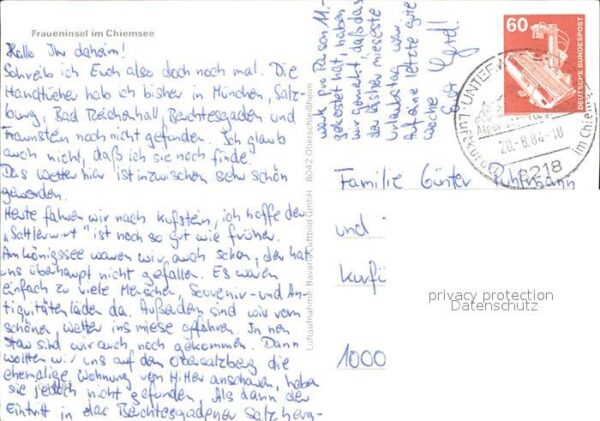 Fraueninsel im Chiemsee
Hallo Ihr daheim!
Schreib ich Euch also doch noch mal. Die
Handtücher hab ich bisher in München, Salz-
burg, Bad Reichenhall, Berchtesgaden und
Traunstein noch nicht gefunden. Ich glaub
auch nicht, daß ich sie noch finde.
Das Wetter hier ist inzwischen sehr schön
geworden.
Heute fahren wir nach Kufstein, ich hoffe der
"Sattlerwirt" ist noch so gut wie früher.
Am Königssee waren wir auch schon, der hat
uns überhaupt nicht gefallen. Es waren
einfach zu viele Menschen, Souvenir- und An-
tiquitätenläden da. Außerdem sind wir vom
schönen Wetter ins miese gefahren. In nen
Stau sind wir auch noch gekommen. Dann
wollten wir uns auf dem Obersalzberg die
ehemalige Wohnung von Hitler anschauen, haben
sie jedoch nicht gefunden. Als dann der
Eintritt in das Berchtesgadener Salzberg-
werk pro Person 11,-
gekostet hat haben
wir gemerkt, daß das
der bisher mieseste
Urlaubstag war.
Auf eine letzte gute
Woche
Eure Gerd!
Luftaufnahme: Bavaria Luftbild GmbH 8042 Oberschleißheim
60
DEUTSCHE BUNDESPOST
20.-6.84-18
8218
im Chiemg
Familie Günter
und
Kurfü
1000
privacy protection
Datenschutz